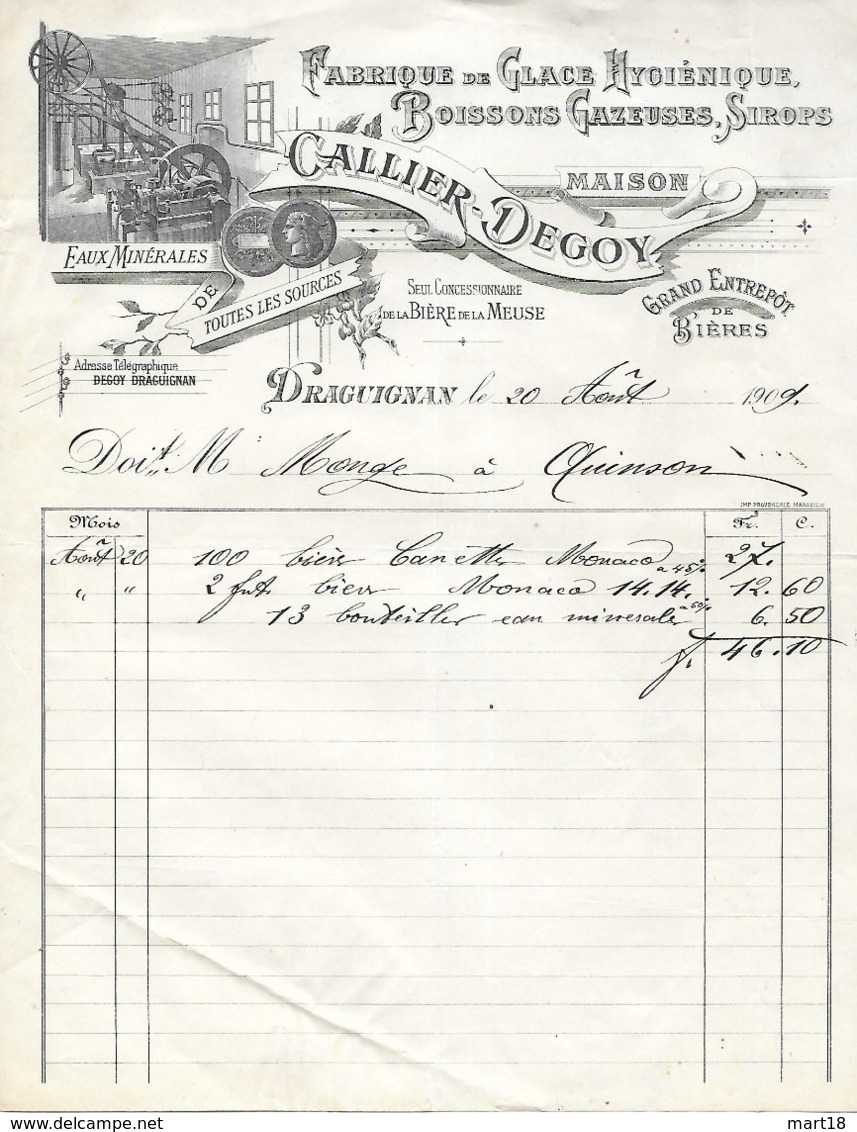 FABRIQUE DE GLACE HYGIÉNIQUE,
BOISSONS GAZEUSES, SIROPS
MAISON
CALLIER-DEGOY
EAUX MINÉRALES
DE
TOUTES LES SOURCES
SEUL CONCESSIONNAIRE
DE LA BIÈRE DE LA MEUSE
GRAND ENTREPÔT
DE
BIÈRES
Adresse Télégraphique
DEGOY DRAGUIGNAN
DRAGUIGNAN le 20 Août 1909.
Doit M Monge à Quinson
IMP PROVENCALE MARSEILLE
Mois Fr. C.
Août 20 100 bière Canette Monaco a 45% 27.
" " 2 fut bier Monaco 14.14. 12.60
13 bouteiller eau minerale 6.50
f. 46.10
delcampe.net
mart18